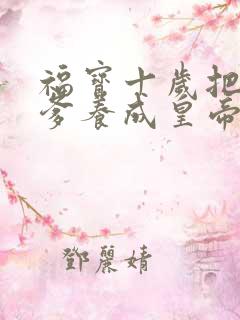 福寶十歲把
爹養成皇帝
鄧麗婧